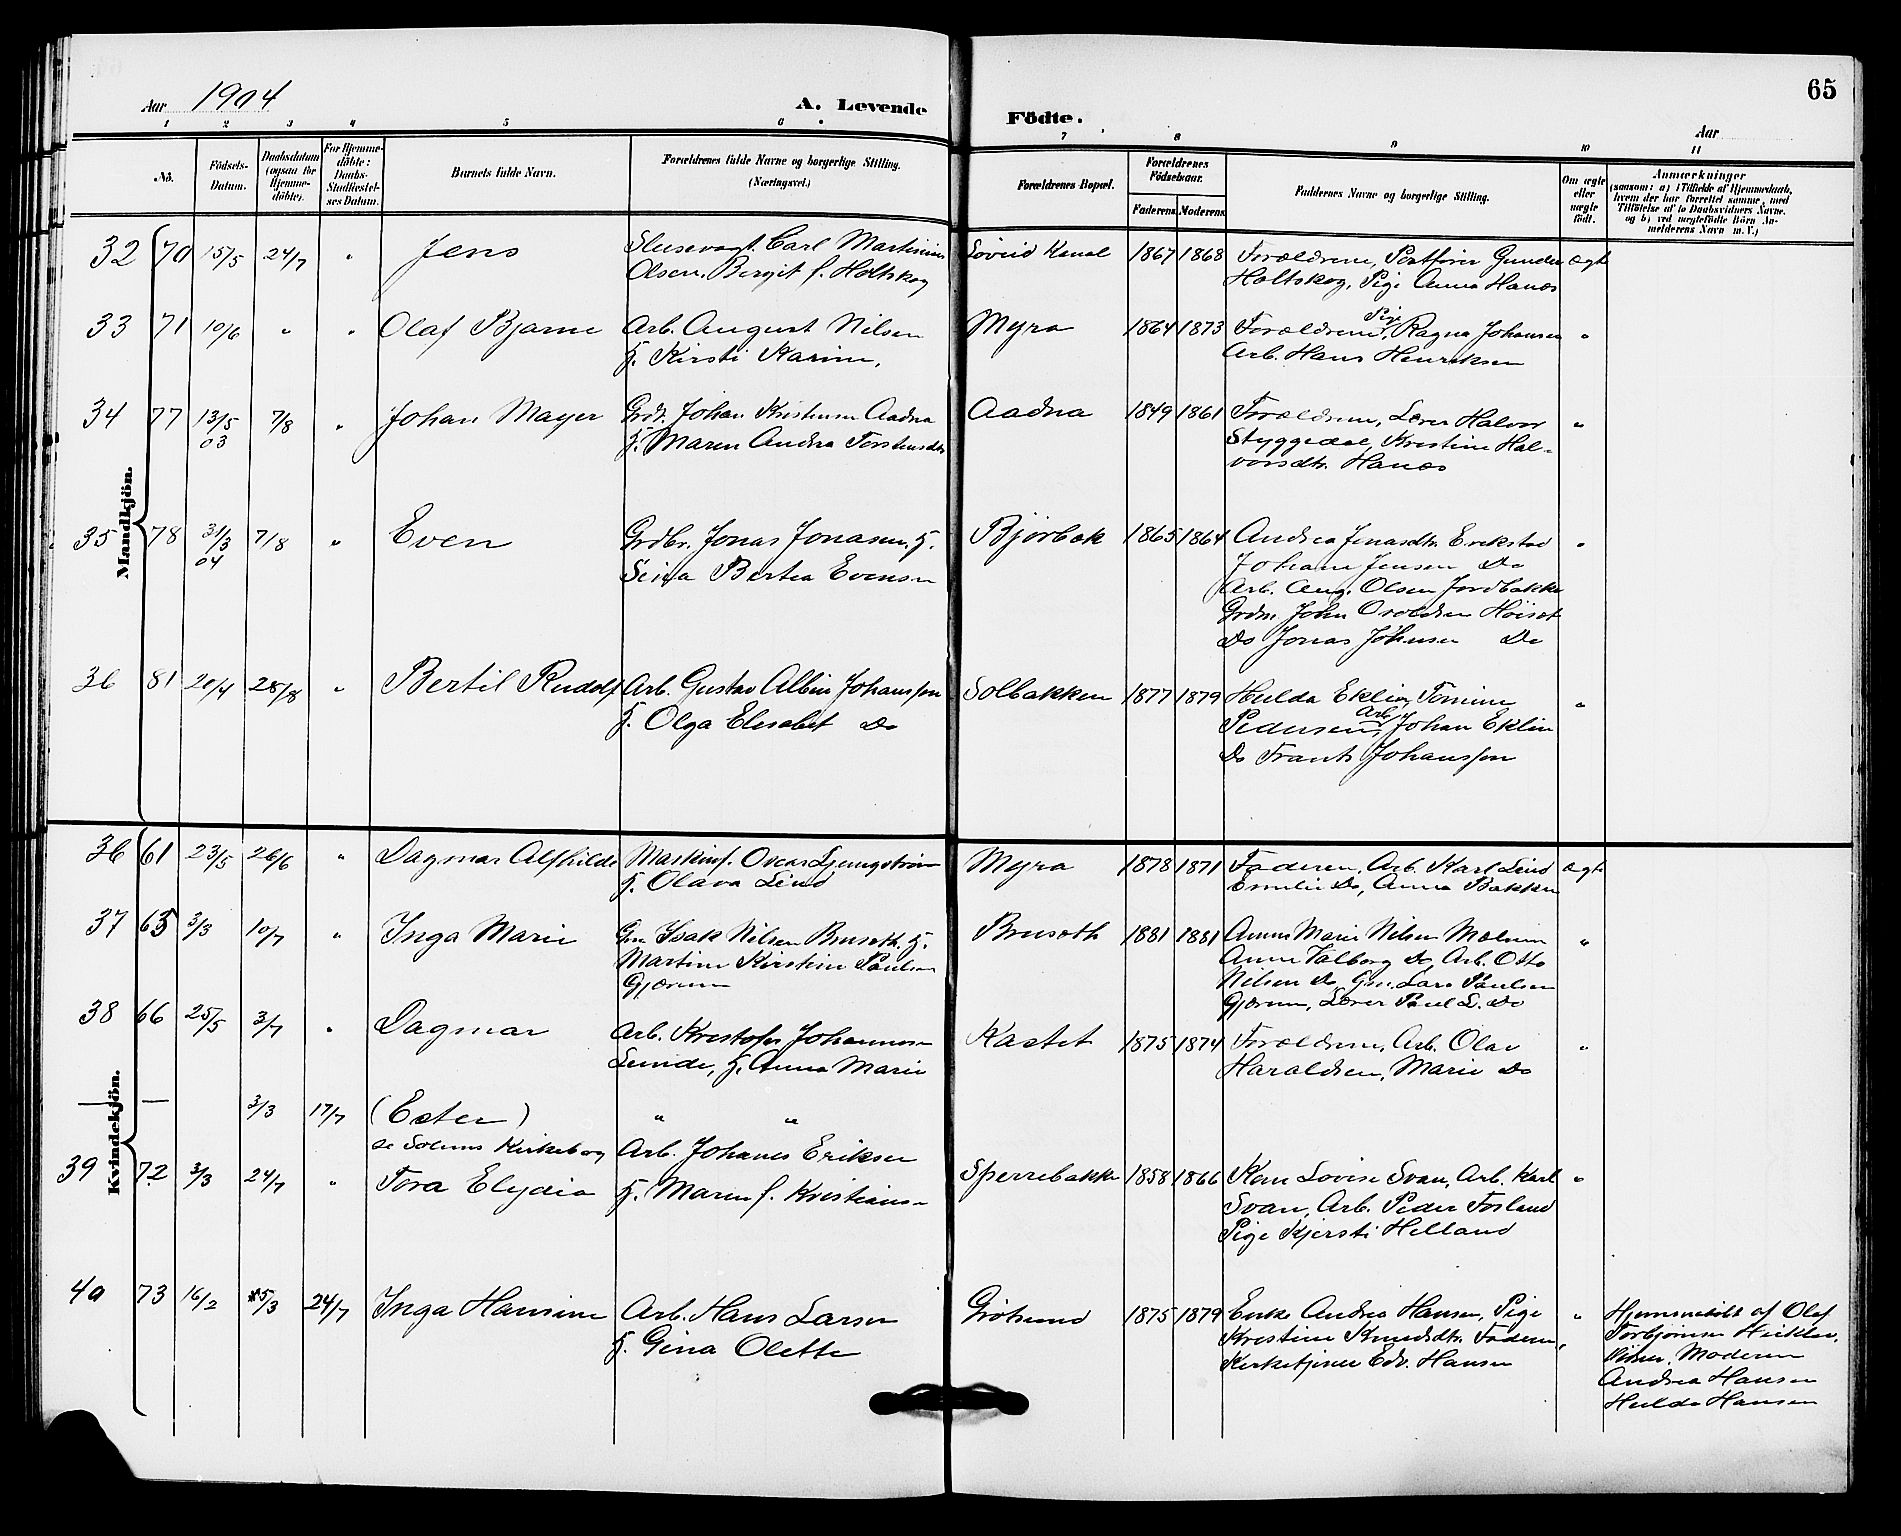 Aar 1904
A. Levende
Födte.
65
Aar
1 2 3 4 5 6 7 8 9 10 11
No.
Födsels-
Datum.
Daabsdatum
(ogsaa for
Hjemme-
döbte).
For Hjemme-
döbte:
Daabs-
Stadfæstel-
ses Datum.
Barnets fulde Navn.
Forældrenes fulde Navne og borgerlige Stilling.
(Næringsvei.)
Forældrenes Bopæl.
Forældrenes
Födselsaar.
Faderens.
Moderens.
Faddernes Navne og borgerlige Stilling.
Om ægte
eller
uægte
födt.
Anmærkninger
(saasom: a) i Tilfælde af Hjemmedaab,
hvem der har forrettet samme, med
Tilföielse af to Daabsvidners Navne.
og b) ved uægtefödte Börn An-
melderens Navn m. V.)
Mandkjön.
32 70 15/5 24/7 " Jens
Slusevagt. Carl Martinius
Olsen, Bergit f. Holtskog
Löveid Kanal 1867 1868
Forældrene, Postfører Gunder
Holtskog, Pige Anna Hanos
Ægte
33 71 10/6 " " Olaf Bjarne
Arb. August Nilsen
H. Kirsti Karine,
Myra 1864 1873
Forældrene, Pige Ragna Johansen
Arb. Hans Henriksen
"
34 77 13/5 03 7/8 " Johan Mayer
Grdb. Johan Kristensen Aadna
H. Maren Andrea Torstensdtr
Aadna 1849 1861
Forældrene, Lærer Halvor
Styggedal, Kristine Hal-
vorsdtr. Hanos
"
35 78 31/3 04 7/8 " Even
Grdbr. Jonas Jonasen. H.
Seina Bertea Evensen
Björbæk 1865 1864
Andrea Jonasdtr. Erikstad
Johan Jensen Do
Arb. Aug. Olsen Jordbakke
Grdm. John Oroldsen Höiset
Do Jonas Johnsen Do
"
36 81 20/4 28/8 " Bertil Rudolf
Arb. Gustav Albin Johansson
H. Olga Elisabet Do
Solbakken 1877 1879
Hulda Eklin, Tomine
Pedersen, Arb. Johan Eklin
Do Frants Johansson
"
Kvindekjön.
36 61 23/5 26/6 " Dagmar Alfhilde
Maskinf. Oscar Ljungström
H. Olava Lind
Myra 1878 1871
Faderen, Arb. Karl Lind
Emilie Do, Anna Bakken
Ægte
37 63 3/3 10/7 " Inga Marie
Gm. Isak Nilsen Bruseth. H.
Martine Kirstine Paulsen
Gjærum
Bruseth 1881 1881
Anne Marie Nilsen Mælum
Anne Valborg Do, Arb. Otto
Nilsen Do, Gm. Lars Paulsen
Gjærum, Lærer Paul L. Do
"
38 66 25/5 3/7 " Dagmar
Arb. Kristofer Johannesen
Lunde, H. Anna Marie
Kastet 1875 1874
Forældrene, Arb. Olav
Haraldsen, Marie Do
"
— — 3/3 17/7 (Ester) " "
se Solums Kirkebog
39 72 3/3 24/7 " Tora Elydia
Arb. Johanes Eriksen
H. Maren f. Kristiansen
Sperrebakke 1858 1866
Kone Lovise Svan, Arb. Karl
Svan, Arb. Peder Fosland
Pige Kjersti Helland
"
40 73 16/2 5/3 24/7 Inga Hansine
Arb. Hans Larsen
H. Gina Olette
Grötsund 1875 1879
Enke Andrea Hansen, Pige
Kristine Knudsdtr. Faderen,
Kirketjener Edv. Hansen
"
Hjemmedöbt af Olaf
Torbjörnsen Heikler.
Vidner. Moderen
Andrea Hansen
Hulda Hansen